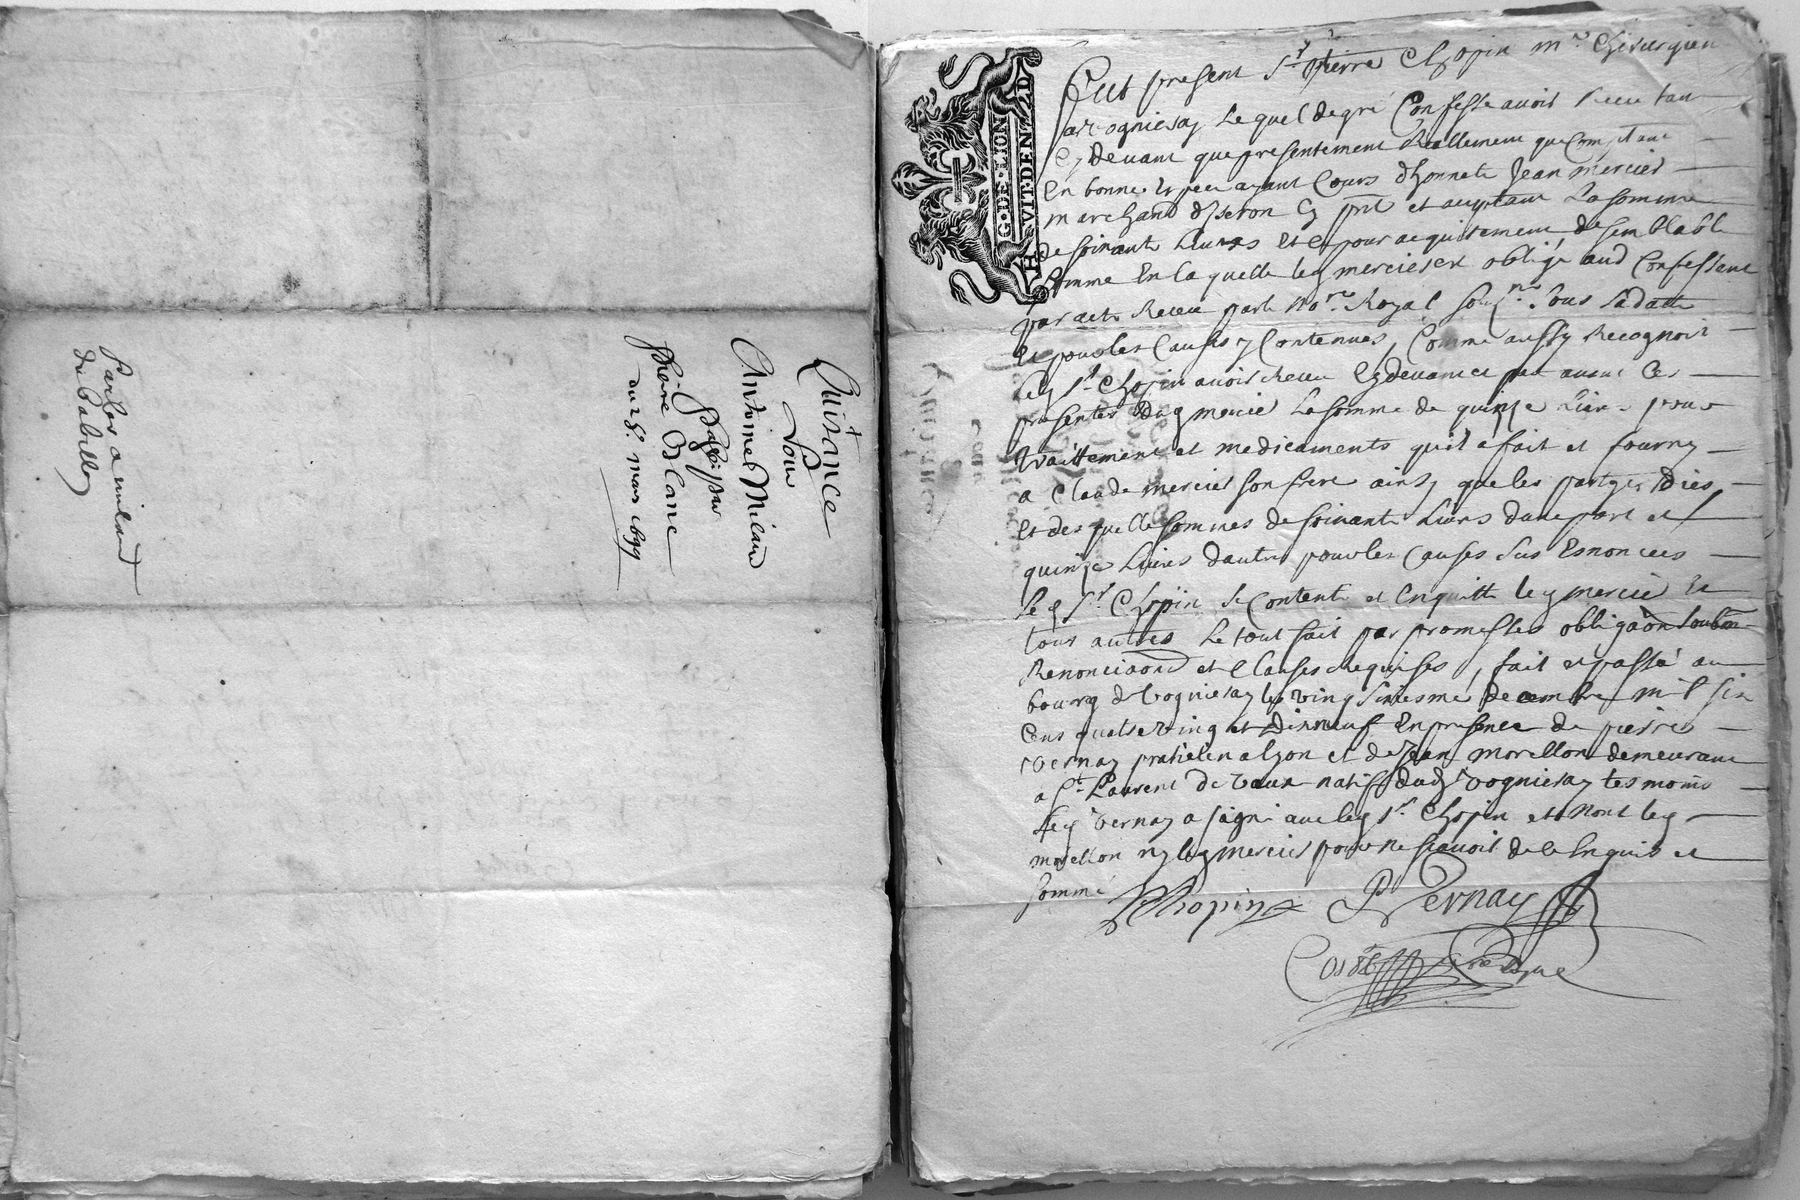 Quitance
Pour
Antoine Nicaud
Passé par
Blanc
du 28e. mars 1699
G·DE·LION
HVIT·DEN·D
Fut present Sr. pierre Chopin me. Chirurgien
a vognieray Lequel de gré Confesse avoir receu tan
Cy devant que presentement Reallement que Comptant
En bonne Espece ayant Cours d'honneste Jean mercier
marchand d'Iseron Cy pnt et acceptant La somme
de soixante Livres Et Ce pour acquitement de semblable
somme En laquelle led mercier Est obligé aud Confessant
par acte Receu par Me. Royal soue. sous sa datte
Et pour les Causes y Contenues, Comme aussy Recognoit
led Sr. Chopin avoir Receu Cy devant et avant Ces
presentes dud mercier La somme de quinze Livres pour
traittement et medicaments quil a fait et fourny
a Claude mercier son frere ainsy que les partyes dies
Et desquelles sommes de soixante Livres dune part et
quinze Livres dautre pour les Causes sus Esnoncees
led Sr. Chopin se Contente et En quitte led mercier Et
tous autres Le tout fait par promesses obligaon soubon
Renonciaons et Clauses Requises, fait et passé au
bourg de vognieray le ving sixiesme decembre mil six
Cens quatre ving et dixneuf En presence de pierre
vernay praticien a lyon et de Jean morellon demeurant
a St. Laurent de vaux natif dud vognieray tesmoins
led vernay a signé avec led Sr. Chopin et Non led
morellon ny led mercier pour ne sçavoir de ce Enquis et
sommé
Chopin P Vernay
Coste